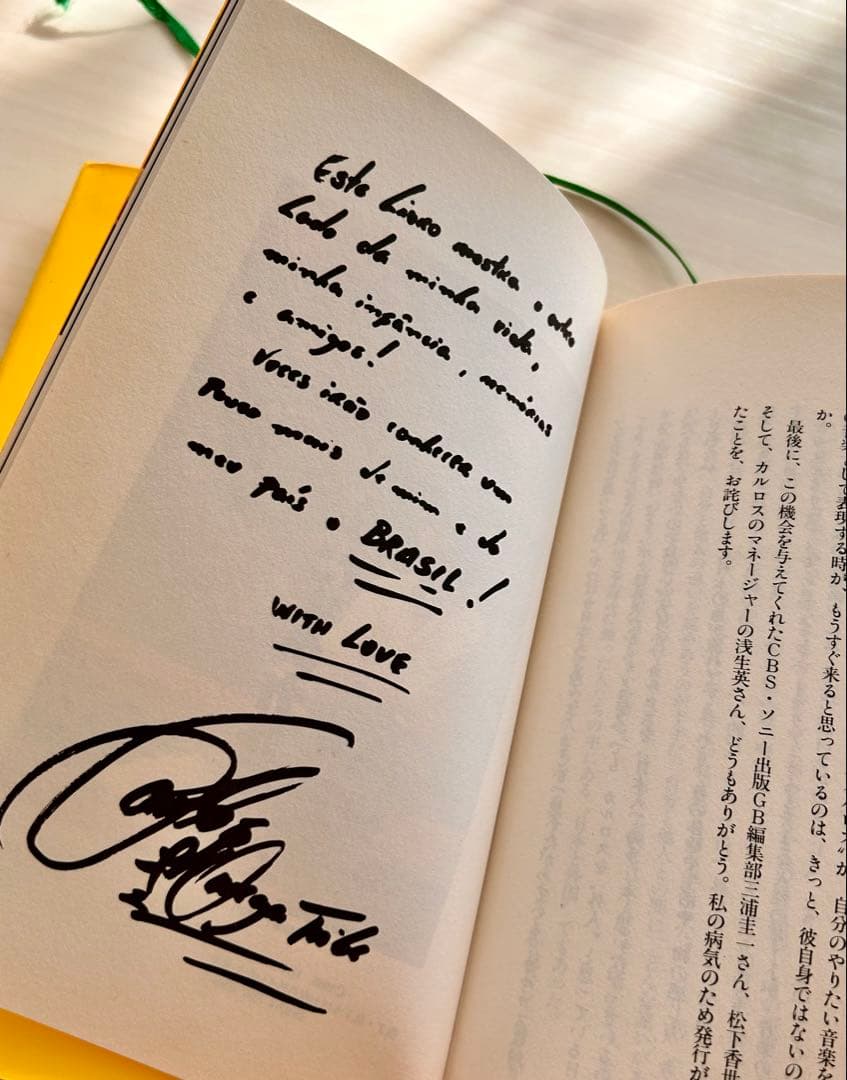 Este Livro mostra o outro
Lado da minha vida,
minha infância, memórias
e amigos!
Voces irão conhecer um
Pouco mais de mim e do
meu País o BRASIL!
WITH LOVE
Carlos
Toshiki
て表現する時が、もうすぐ来ると思っているのは、きっと、彼自身ではないの
か。
最後に、この機会を与えてくれたCBS・ソニー出版GB編集部三浦圭一さん、松下香世
そして、カルロスのマネージャーの浅生英さん、どうもありがとう。私の病気のため発行が
たことを、お詫びします。